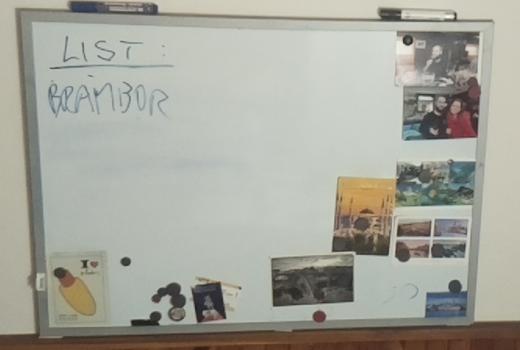 LIST:
BRAMBOR
I ❤